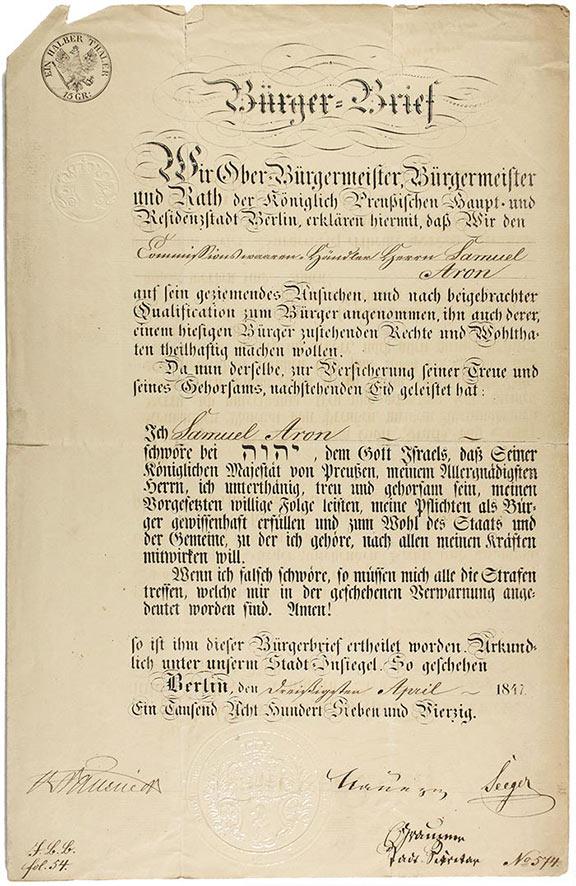 EIN HALBER THALER
15 GR:
Bürger-Brief
Wir Ober-Bürgermeister, Bürgermeister
und Rath der Königlich Preußischen Haupt- und
Residenzstadt Berlin, erklären hiermit, daß Wir den
Commissionswaaren-Händler Herrn Samuel
Aron
auf sein geziemendes Ansuchen, und nach beigebrachter
Qualification zum Bürger angenommen, ihn auch derer,
einem hiesigen Bürger zustehenden Rechte und Wohltha-
ten theilhaftig machen wollen.
Da nun derselbe, zur Versicherung seiner Treue und
seines Gehorsams, nachstehenden Eid geleistet hat:
Ich Samuel Aron
schwöre bei יהוה, dem Gott Israels, daß Seiner
Königlichen Majestät von Preußen, meinem Allergnädigsten
Herrn, ich unterthänig, treu und gehorsam sein, meinen
Vorgesetzten willige Folge leisten, meine Pflichten als Bür-
ger gewissenhaft erfüllen und zum Wohl des Staats und
der Gemeine, zu der ich gehöre, nach allen meinen Kräften
mitwirken will.
Wenn ich falsch schwöre, so müssen mich alle die Strafen
treffen, welche mir in der geschehenen Verwarnung ange-
deutet worden sind. Amen!
so ist ihm dieser Bürgerbrief ertheilet worden. Urkund-
lich unter unserm Stadt-Insiegel. So geschehen
Berlin, den Dreißigsten April 1847.
Ein Tausend Acht Hundert Sieben und Vierzig.
Seeger
Stadt-Sekretar
J. B. B.
fol. 54.
No 574.